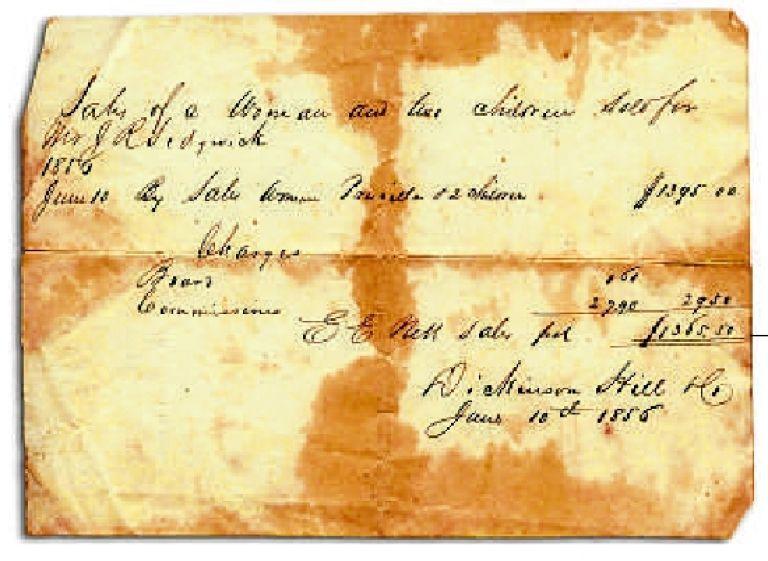 Sales of a Woman and two children sold for
Mr J R Sedgwick
1856
June 10 By Sales Woman & 2 children $1395 00
Charges
Board 160
Commissions 2790 2950
E E Nett Sales $1365.50
Dickinson Hill & Co
June 10th 1856